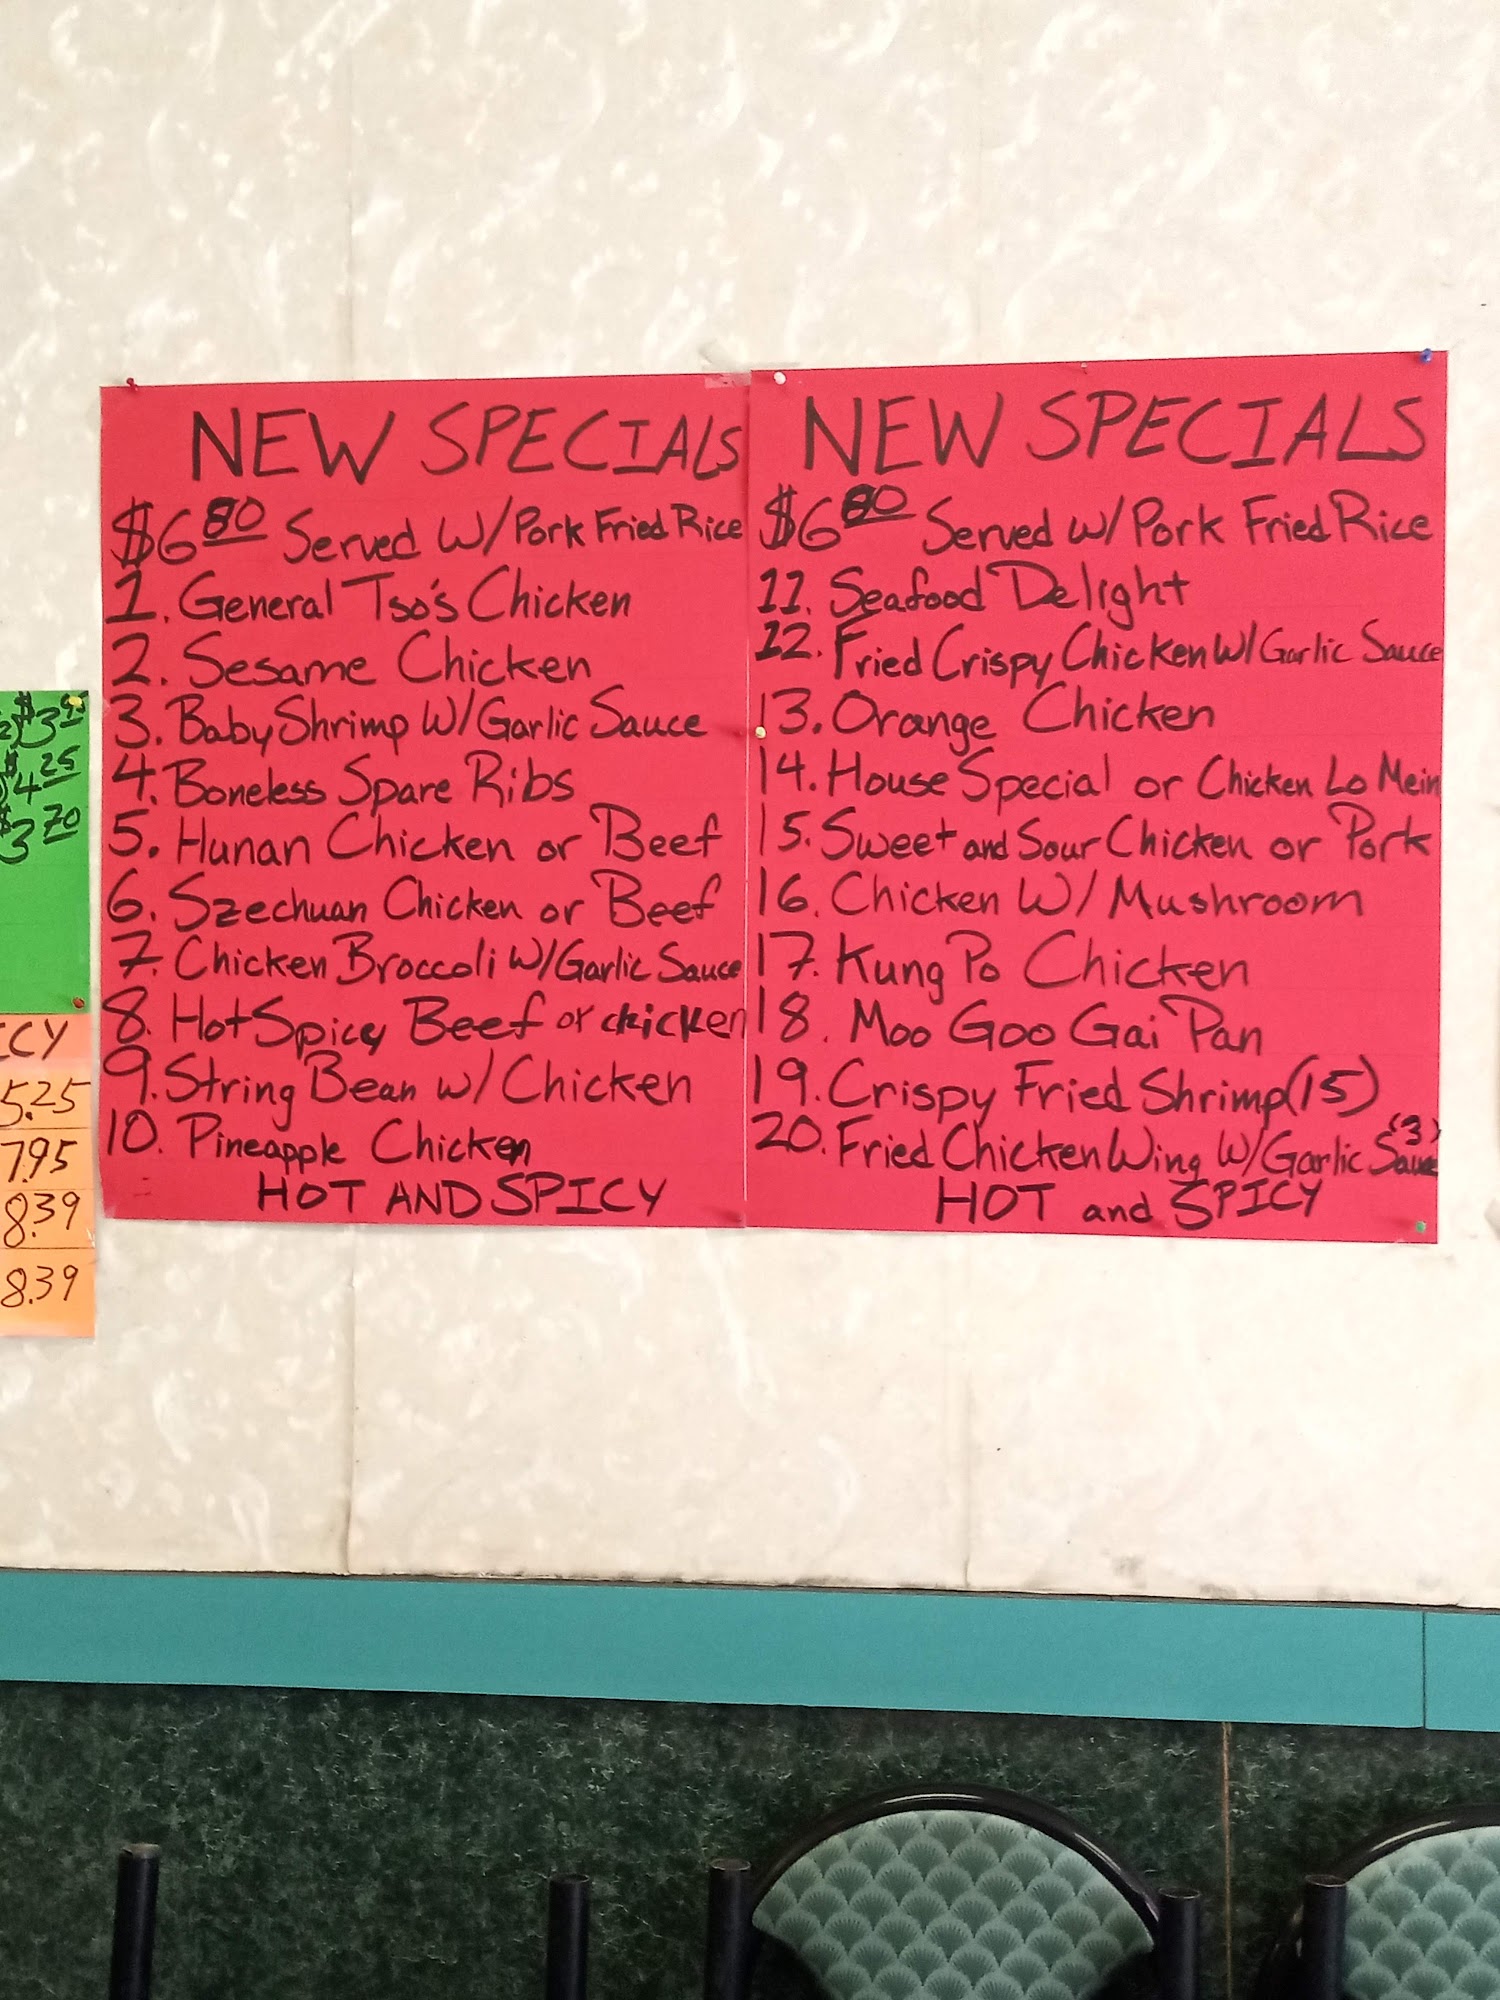 NEW SPECIALS
$6.80 Served W/Pork Fried Rice
1. General Tso's Chicken
2. Sesame Chicken
3. Baby Shrimp W/Garlic Sauce
4. Boneless Spare Ribs
5. Hunan Chicken or Beef
6. Szechuan Chicken or Beef
7. Chicken Broccoli W/Garlic Sauce
8. Hot Spicy Beef or chicken
9. String Bean w/Chicken
10. Pineapple Chicken
HOT AND SPICY
NEW SPECIALS
$6.80 Served w/Pork Fried Rice
11. Seafood Delight
12. Fried Crispy Chicken W/Garlic Sauce
13. Orange Chicken
14. House Special or Chicken Lo Mein
15. Sweet and Sour Chicken or Pork
16. Chicken W/Mushroom
17. Kung Po Chicken
18. Moo Goo Gai Pan
19. Crispy Fried Shrimp (15)
20. Fried Chicken Wing W/Garlic Sauce (3)
HOT and SPICY
$4.25
$3.70
5.25
7.95
8.39
8.39